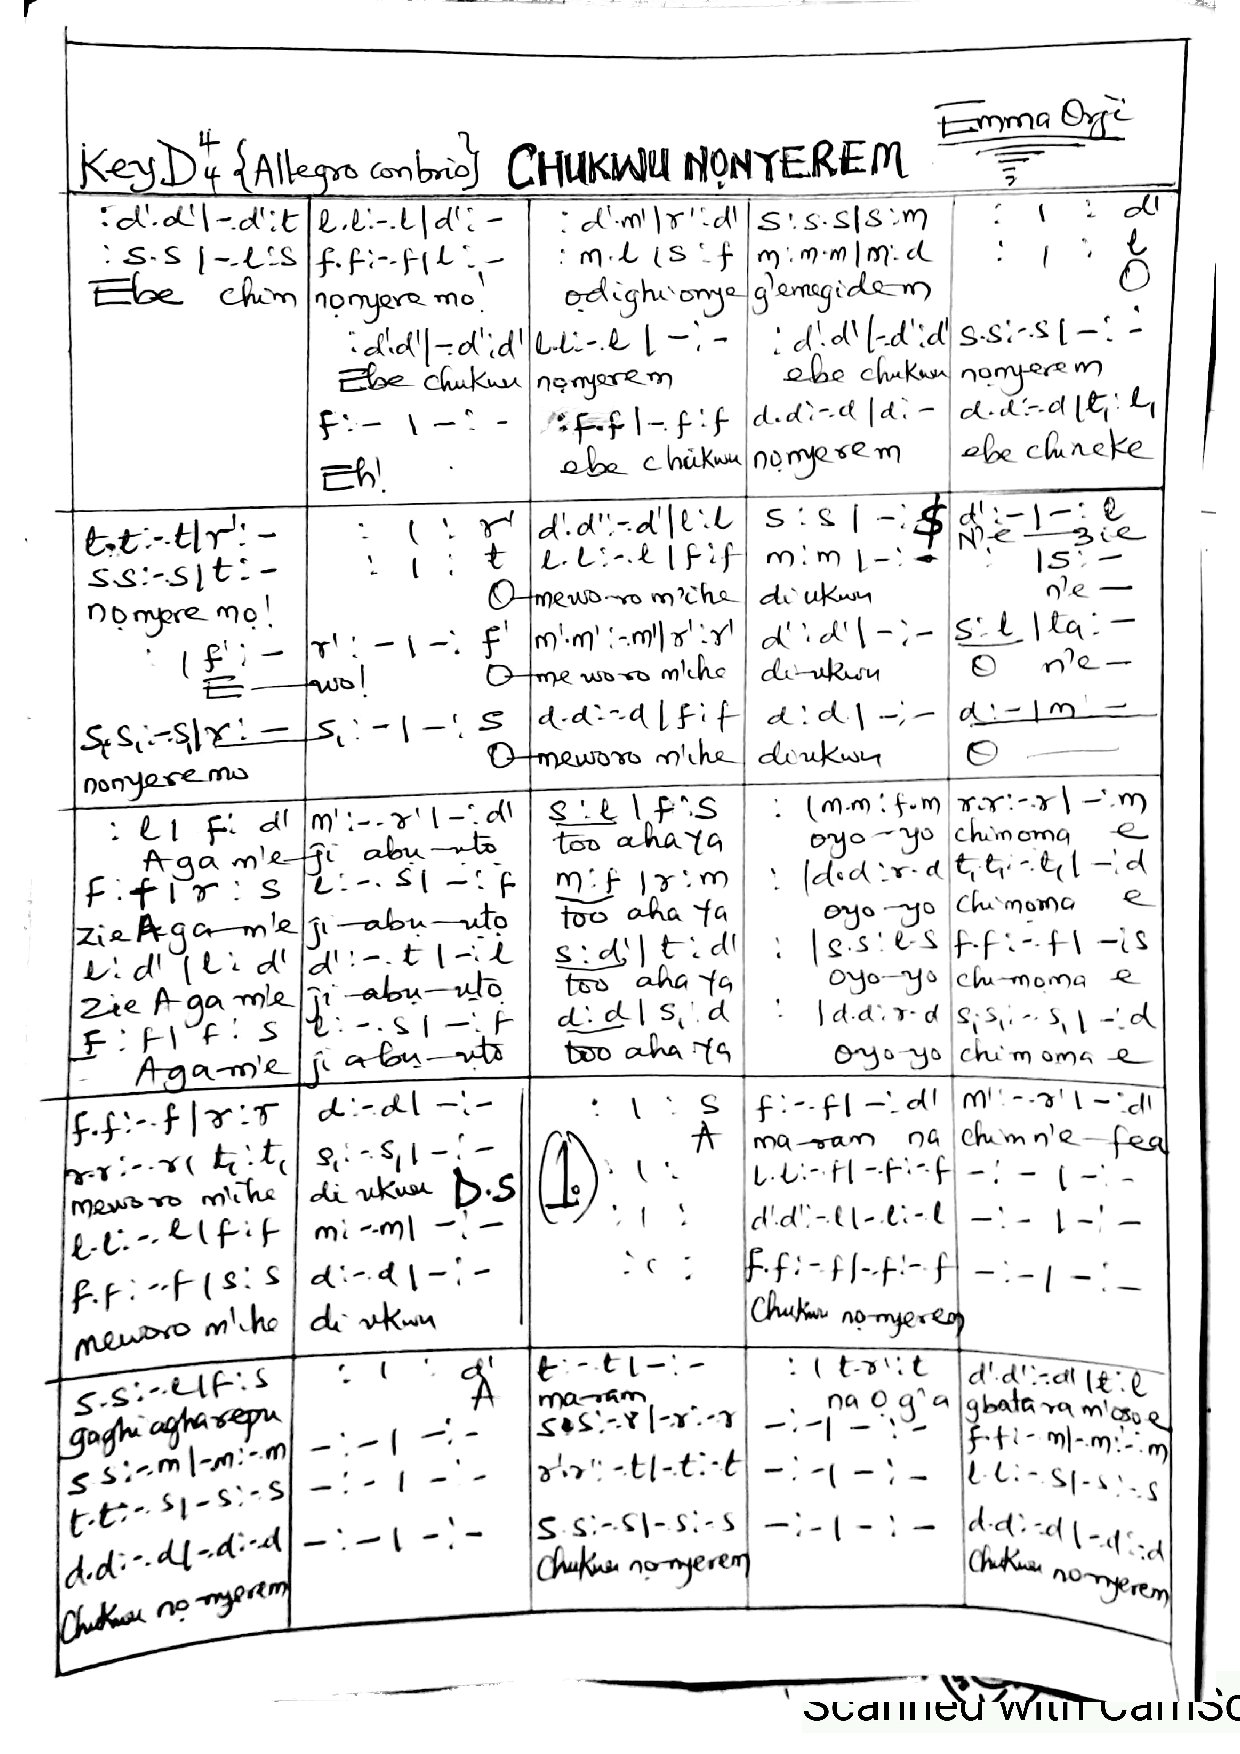 Emma Orji
Key D 4/4 {Allegro con brio} CHUKWU NỌNYEREM
:d'.d'|-.d':t | l.l:-.l|d':- | :d'.m'|r':d' | s:s.s|s:m | : | : d'
:s.s|-.l:s | f.f:-.f|l:- | :m.l|s:f | m:m.m|m:d | : | : l
Ebe chim | nọnyere mo! | odighi onye | g'emegidem | O
:d'.d'|-.d':d' | l.l:-.l|-:- | :d'.d'|-.d':d' | s.s:-.s|-:-
Ebe chukwu | nọnyerem | ebe chukwu | nọnyerem
f:-|-:- | :f.f|-.f:f | d.d:-.d|d:- | d.d:-.d|t,:l,
Eh! | ebe chukwu | nọnyerem | ebe chineke
t.t:-.t|r':- | : | : r' | d'.d':-.d'|l:l | s:s|-:$ | d':-|-:l
N'e zie
s.s:-.s|t:- | : | : t | l.l:-.l|f:f | m:m|-:- | |s:-
nọnyere mọ! | O mewo-ro m'ihe | di ukwu | n'e
: |f':- | r':-|-: f' | m'.m':-.m'|r':r' | d':d'|-:- | s:l|ta:-
E wo! | O me woro m'ihe | di-ukwu | O n'e
s,.s,:-.s,|r:- | s,:-|-:s | d.d:-.d|f:f | d:d|-:- | d:-|m:-
nonyere mo | O meworo m'ihe | di ukwu | O
: l| f: d' | m':-.r'|-:d' | s:l|f:s | : |m.m:f.m | r.r:-.r|-:m
A ga m'e | ji abu uto | too aha ya | oyo-yo | chimoma e
f:f|r:s | l:-.s|-:f | m:f|r:m | : |d.d:r.d | t,.t,:-.t,|-:d
zie A ga m'e | ji abu uto | too aha ya | oyo-yo | chimoma e
l:d'|l:d' | d':-.t|-:l | s:d'|t:d' | : |s.s:l.s | f.f:-.f|-:s
zie A ga m'e | ji abu uto | too aha ya | oyo-yo | chi-moma e
f:f|f:s | l:-.s|-:f | d:d|s,:d | : |d.d:r.d | s,.s,:-.s,|-:d
A ga m'e | ji abu uto | too aha ya | oyo-yo | chimoma e
f.f:-.f|r:r | d:-.d|-:- | : | : s | f:-.f|-:d' | m':-.r'|-:d'
A | ma-ram na | chim n'e-fea
r.r:-.r|t,:t, | s,:-.s,|-:- | 1. : | : | l.l:-.f|-.f:-.f | -:-|-:-
meworo m'ihe | di ukwu D.S
l.l:-.l|f:f | m:-.m|-:- | : | : | d'.d':-.l|-.l:-.l | -:-|-:-
f.f:-.f|s:s | d:-.d|-:- | : | : | f.f:-.f|-.f:-.f | -:-|-:-
meworo m'ihe | di ukwu | Chukwu nọ-nyerem
s.s:-.l|f:s | : | : d' | t:-.t|-:- | : | t.r':t | d'.d':-.d'|t:l
gaghi agharepu | A | ma-ram | na O g'a | gbatara m'oso e
s.s:-.m|-.m:-.m | -:-|-:- | s.s:-.r|-.r:-.r | -:-|-:- | f.f:-.m|-.m:-.m
t.t:-.s|-.s:-.s | -:-|-:- | r'.r':-.t|-.t:-.t | -:-|-:- | l.l:-.s|-.s:-.s
d.d:-.d|-.d:-.d | -:-|-:- | s.s:-.s|-.s:-.s | -:-|-:- | d.d:-.d|-.d:-.d
Chukwu nọ-nyerem | Chukwu nọ-nyerem | Chukwu nọ-nyerem
Scanned with CamSc